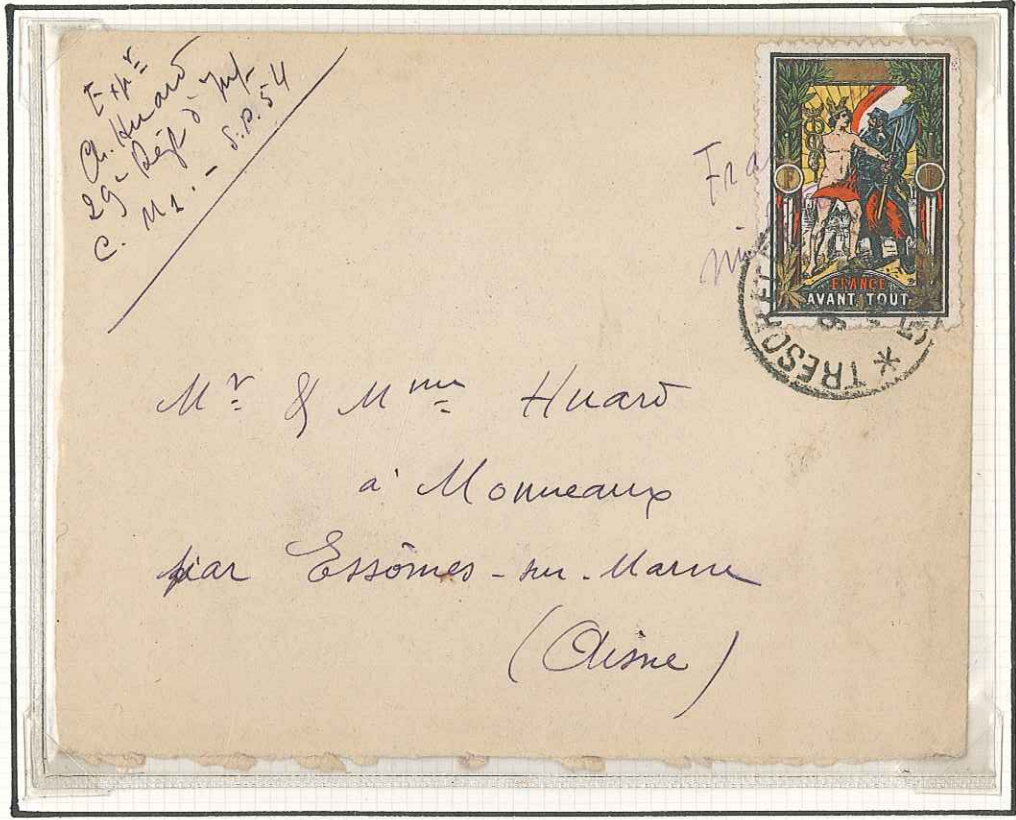 Expr
Ch. Huard
29e Régt d'Inf.
C. M 1. - S.P. 54
Fra
FRANCE
AVANT TOUT
TRESOR ET
* 5
Mr & Mme Huard
à Monneaux
par Essômes-sur-Marne
(Aisne)